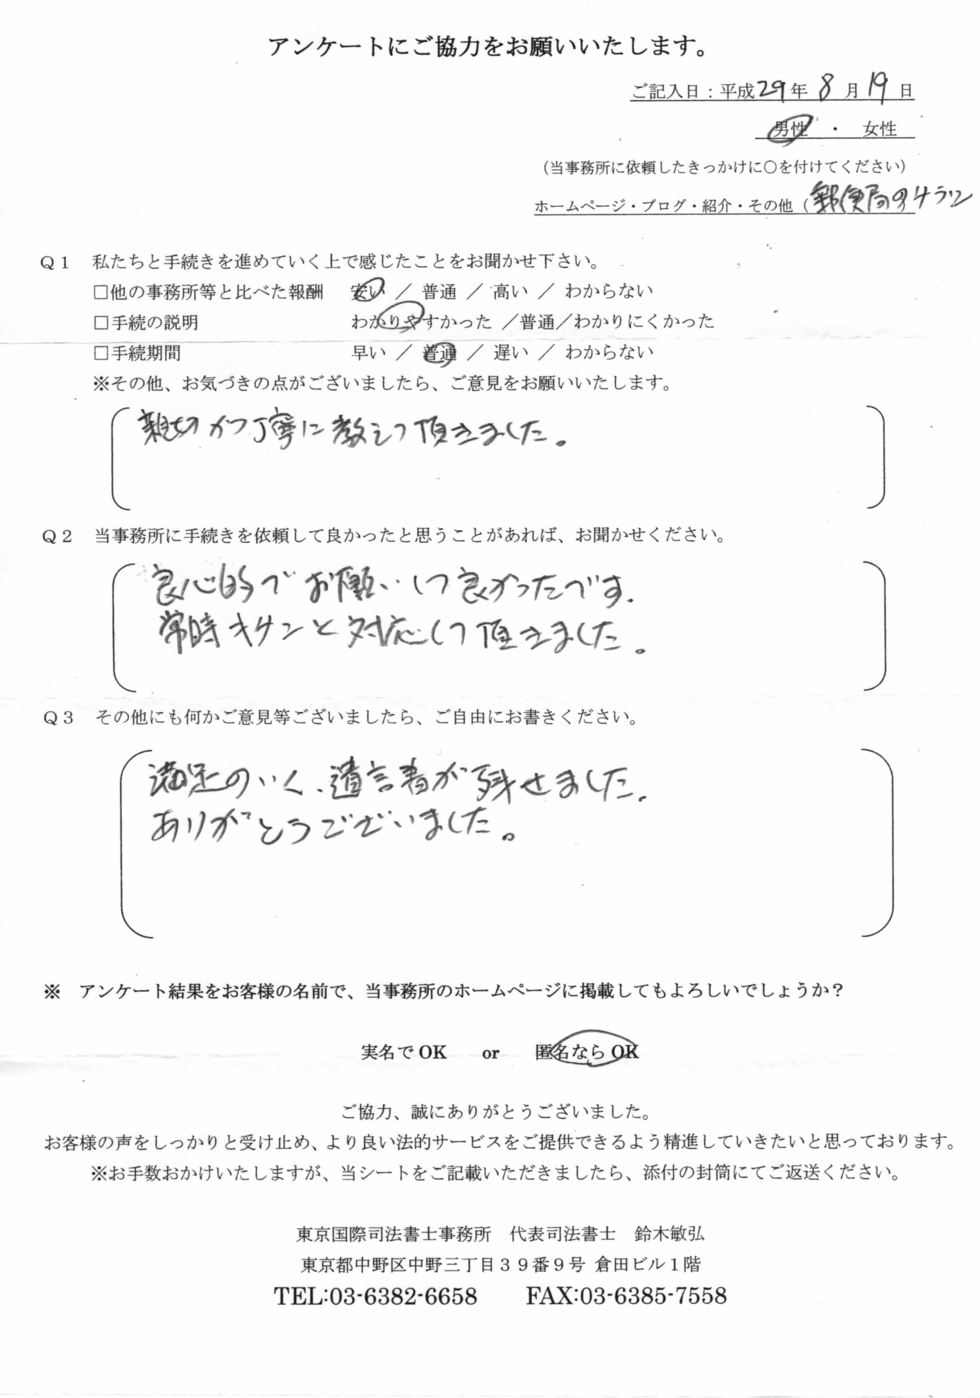 アンケートにご協力をお願いいたします。
ご記入日：平成29年 8月19日
男性 ・ 女性
（当事務所に依頼したきっかけに○を付けてください）
ホームページ・ブログ・紹介・その他（郵便局のチラシ
Q1 私たちと手続きを進めていく上で感じたことをお聞かせ下さい。
□他の事務所等と比べた報酬 安い ／ 普通 ／ 高い ／ わからない
□手続の説明 わかりやすかった ／普通／わかりにくかった
□手続期間 早い ／ 普通 ／ 遅い ／ わからない
※その他、お気づきの点がございましたら、ご意見をお願いいたします。
親切かつ丁寧に教えて頂きました。
Q2 当事務所に手続きを依頼して良かったと思うことがあれば、お聞かせください。
良心的でお願いして良かったです.
常時キチンと対応して頂きました。
Q3 その他にも何かご意見等ございましたら、ご自由にお書きください。
満足のいく、遺言書が残せました.
ありがとうございました。
※ アンケート結果をお客様の名前で、当事務所のホームページに掲載してもよろしいでしょうか？
実名でOK or 匿名ならOK
ご協力、誠にありがとうございました。
お客様の声をしっかりと受け止め、より良い法的サービスをご提供できるよう精進していきたいと思っております。
※お手数おかけいたしますが、当シートをご記載いただきましたら、添付の封筒にてご返送ください。
東京国際司法書士事務所 代表司法書士 鈴木敏弘
東京都中野区中野三丁目３９番９号 倉田ビル１階
TEL:03-6382-6658 FAX:03-6385-7558